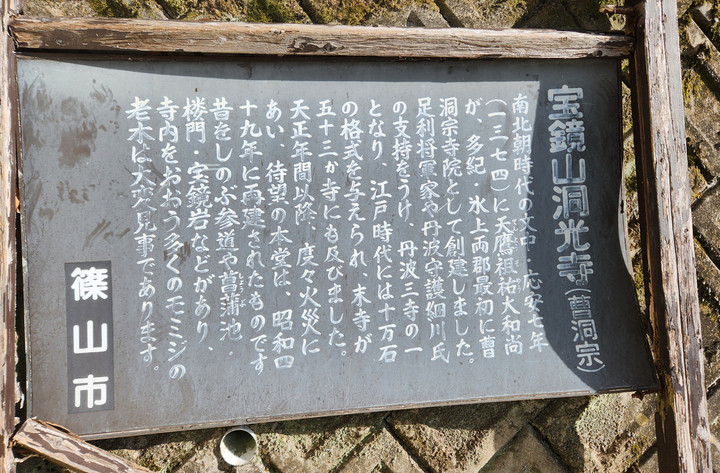 宝鏡山洞光寺(曹洞宗)
南北朝時代の文中 応安七年
(一三七四)に天鷹祖祐大和尚
が、多紀、氷上両郡最初に曹
洞宗寺院として創建しました。
足利将軍家や丹波守護細川氏
の支持をうけ、丹波三寺の一
となり、江戸時代には十万石
の格式を与えられ、末寺が
五十三か寺にも及びました。
天正年間以降、度々火災に
あい、待望の本堂は、昭和四
十九年に再建されたものです
昔をしのぶ参道や菖蒲池・
しょうぶ
楼門、宝鏡岩などがあり
寺内をおおう多くのモミジの
老木は大変見事であります。
篠山市